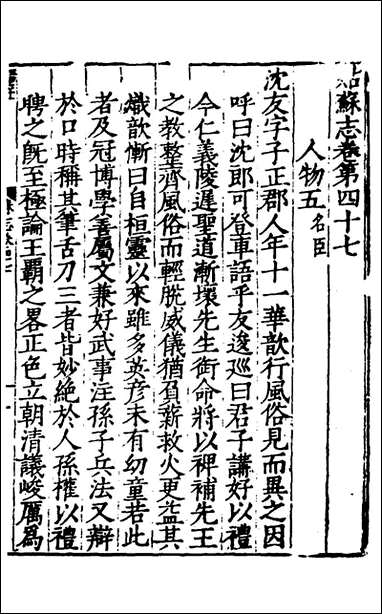 姑蘇志卷第四十七
人物五 名臣
沈友字子正郡人年十一華歆行風俗見而異之因
呼曰沈郎可登車語乎友逡巡曰君子講好以禮
今仁義陵遲聖道漸壞先生銜命將以裨補先王
之教整齊風俗而輕脫威儀猶負薪救火更益其
熾歆慚曰自桓靈以來雖多英彥未有幼童若此
者及冠博學善屬文兼好武事注孫子兵法又辯
於口時稱其筆舌刀三者皆妙絕於人孫權以禮
聘之旣至極論王霸之畧正色立朝清議峻厲爲